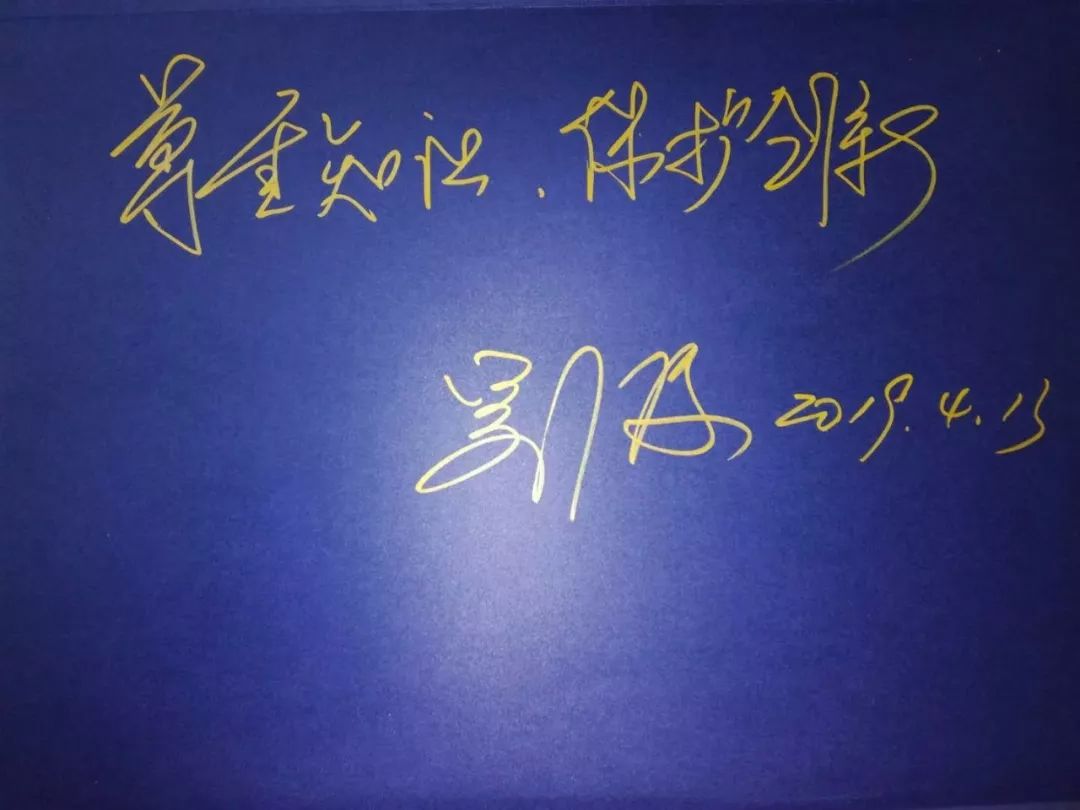 尊重知识、保护创新
2019.4.13